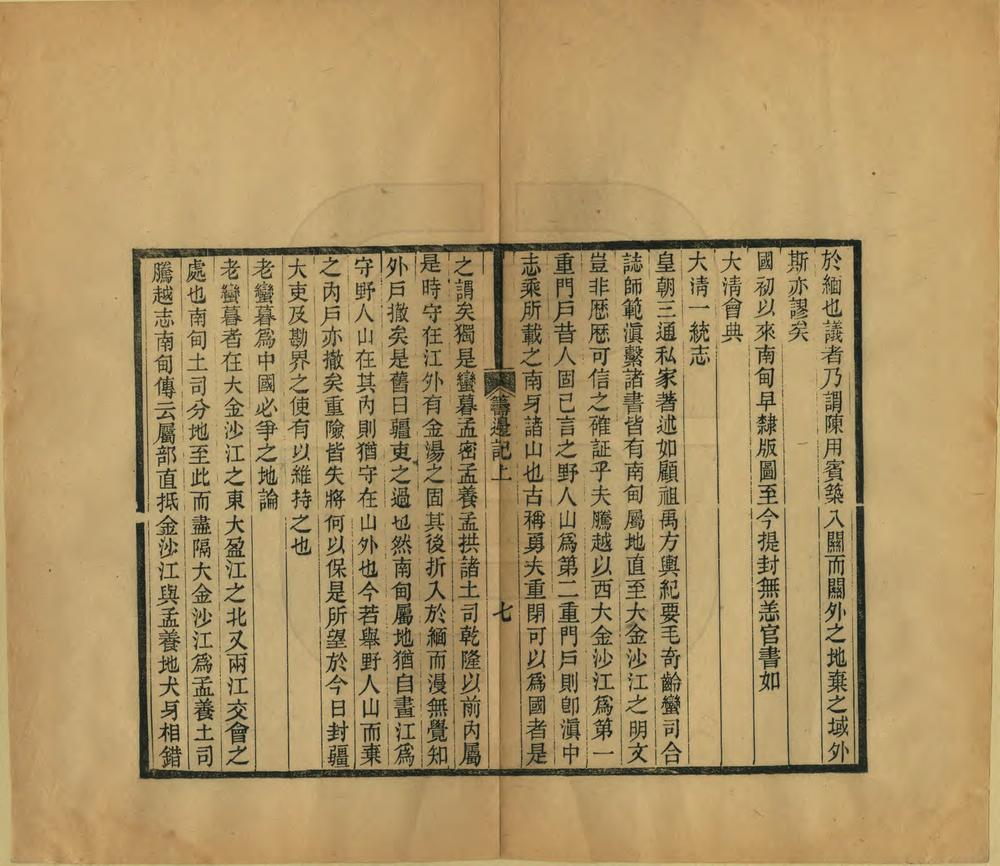 於緬也議者乃謂陳用賓築入關而關外之地棄之域外
斯亦謬矣
國初以來南甸早隸版圖至今提封無恙官書如
大清會典
大清一統志
皇朝三通私家著述如顧祖禹方輿紀要毛奇齡蠻司合
誌師範滇繫諸書皆有南甸屬地直至大金沙江之明文
豈非歷歷可信之確証乎夫騰越以西大金沙江為第一
重門戶昔人固已言之野人山為第二重門戶則卽滇中
志乘所載之南牙諸山也古稱勇夫重閉可以為國者是
籌邊記上
七
之謂矣獨是蠻暮孟密孟養孟拱諸土司乾隆以前內屬
是時守在江外有金湯之固其後折入於緬而漫無覺知
外戶撤矣是舊日疆吏之過也然南甸屬地猶自畫江為
守野人山在其內則猶守在山外也今若舉野人山而棄
之內戶亦撤矣重險皆失將何以保是所望於今日封疆
大吏及勘界之使有以維持之也
老蠻暮為中國必爭之地論
老蠻暮者在大金沙江之東大盈江之北又兩江交會之
處也南甸土司分地至此而盡隔大金沙江為孟養土司
騰越志南甸傳云屬部直抵金沙江與孟養地犬牙相錯